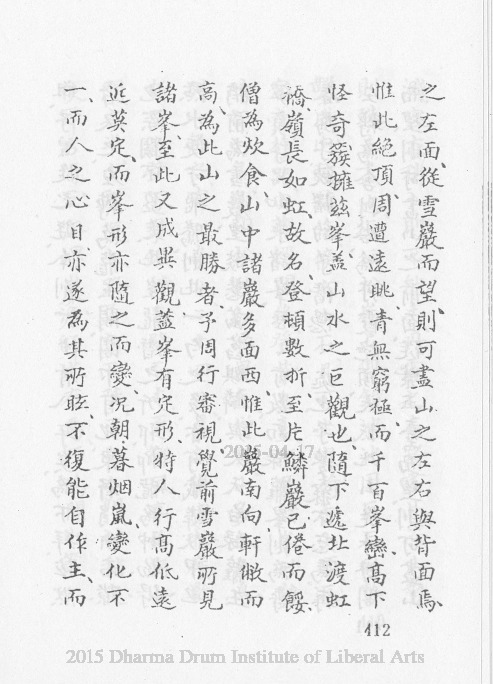 之左面、從雪巖而望、則可盡山之左右與背面焉、
惟此絕頂、周遭遠眺、青無窮極、而千百峯巒、高下
怪奇、簇擁茲峯、盖山水之巨觀也、隨下迤北渡虹
橋、嶺長如虹、故名、登頓數折、至片鱗巖、已倦而餒、
僧為炊食、山中諸巖、多面西、惟此巖南向、軒敞而
高、為此山之最勝者、予周行審視、覺前雪巖所見
諸峯、至此又成異觀、蓋峯有定形、特人行高低遠
近莫定、而峯形亦隨之而變、况朝暮烟嵐、變化不
一、而人之心目、亦遂為其所眩、不復能自作主、而
412
2015-04-17
2015 Dharma Drum Institute of Liberal Arts